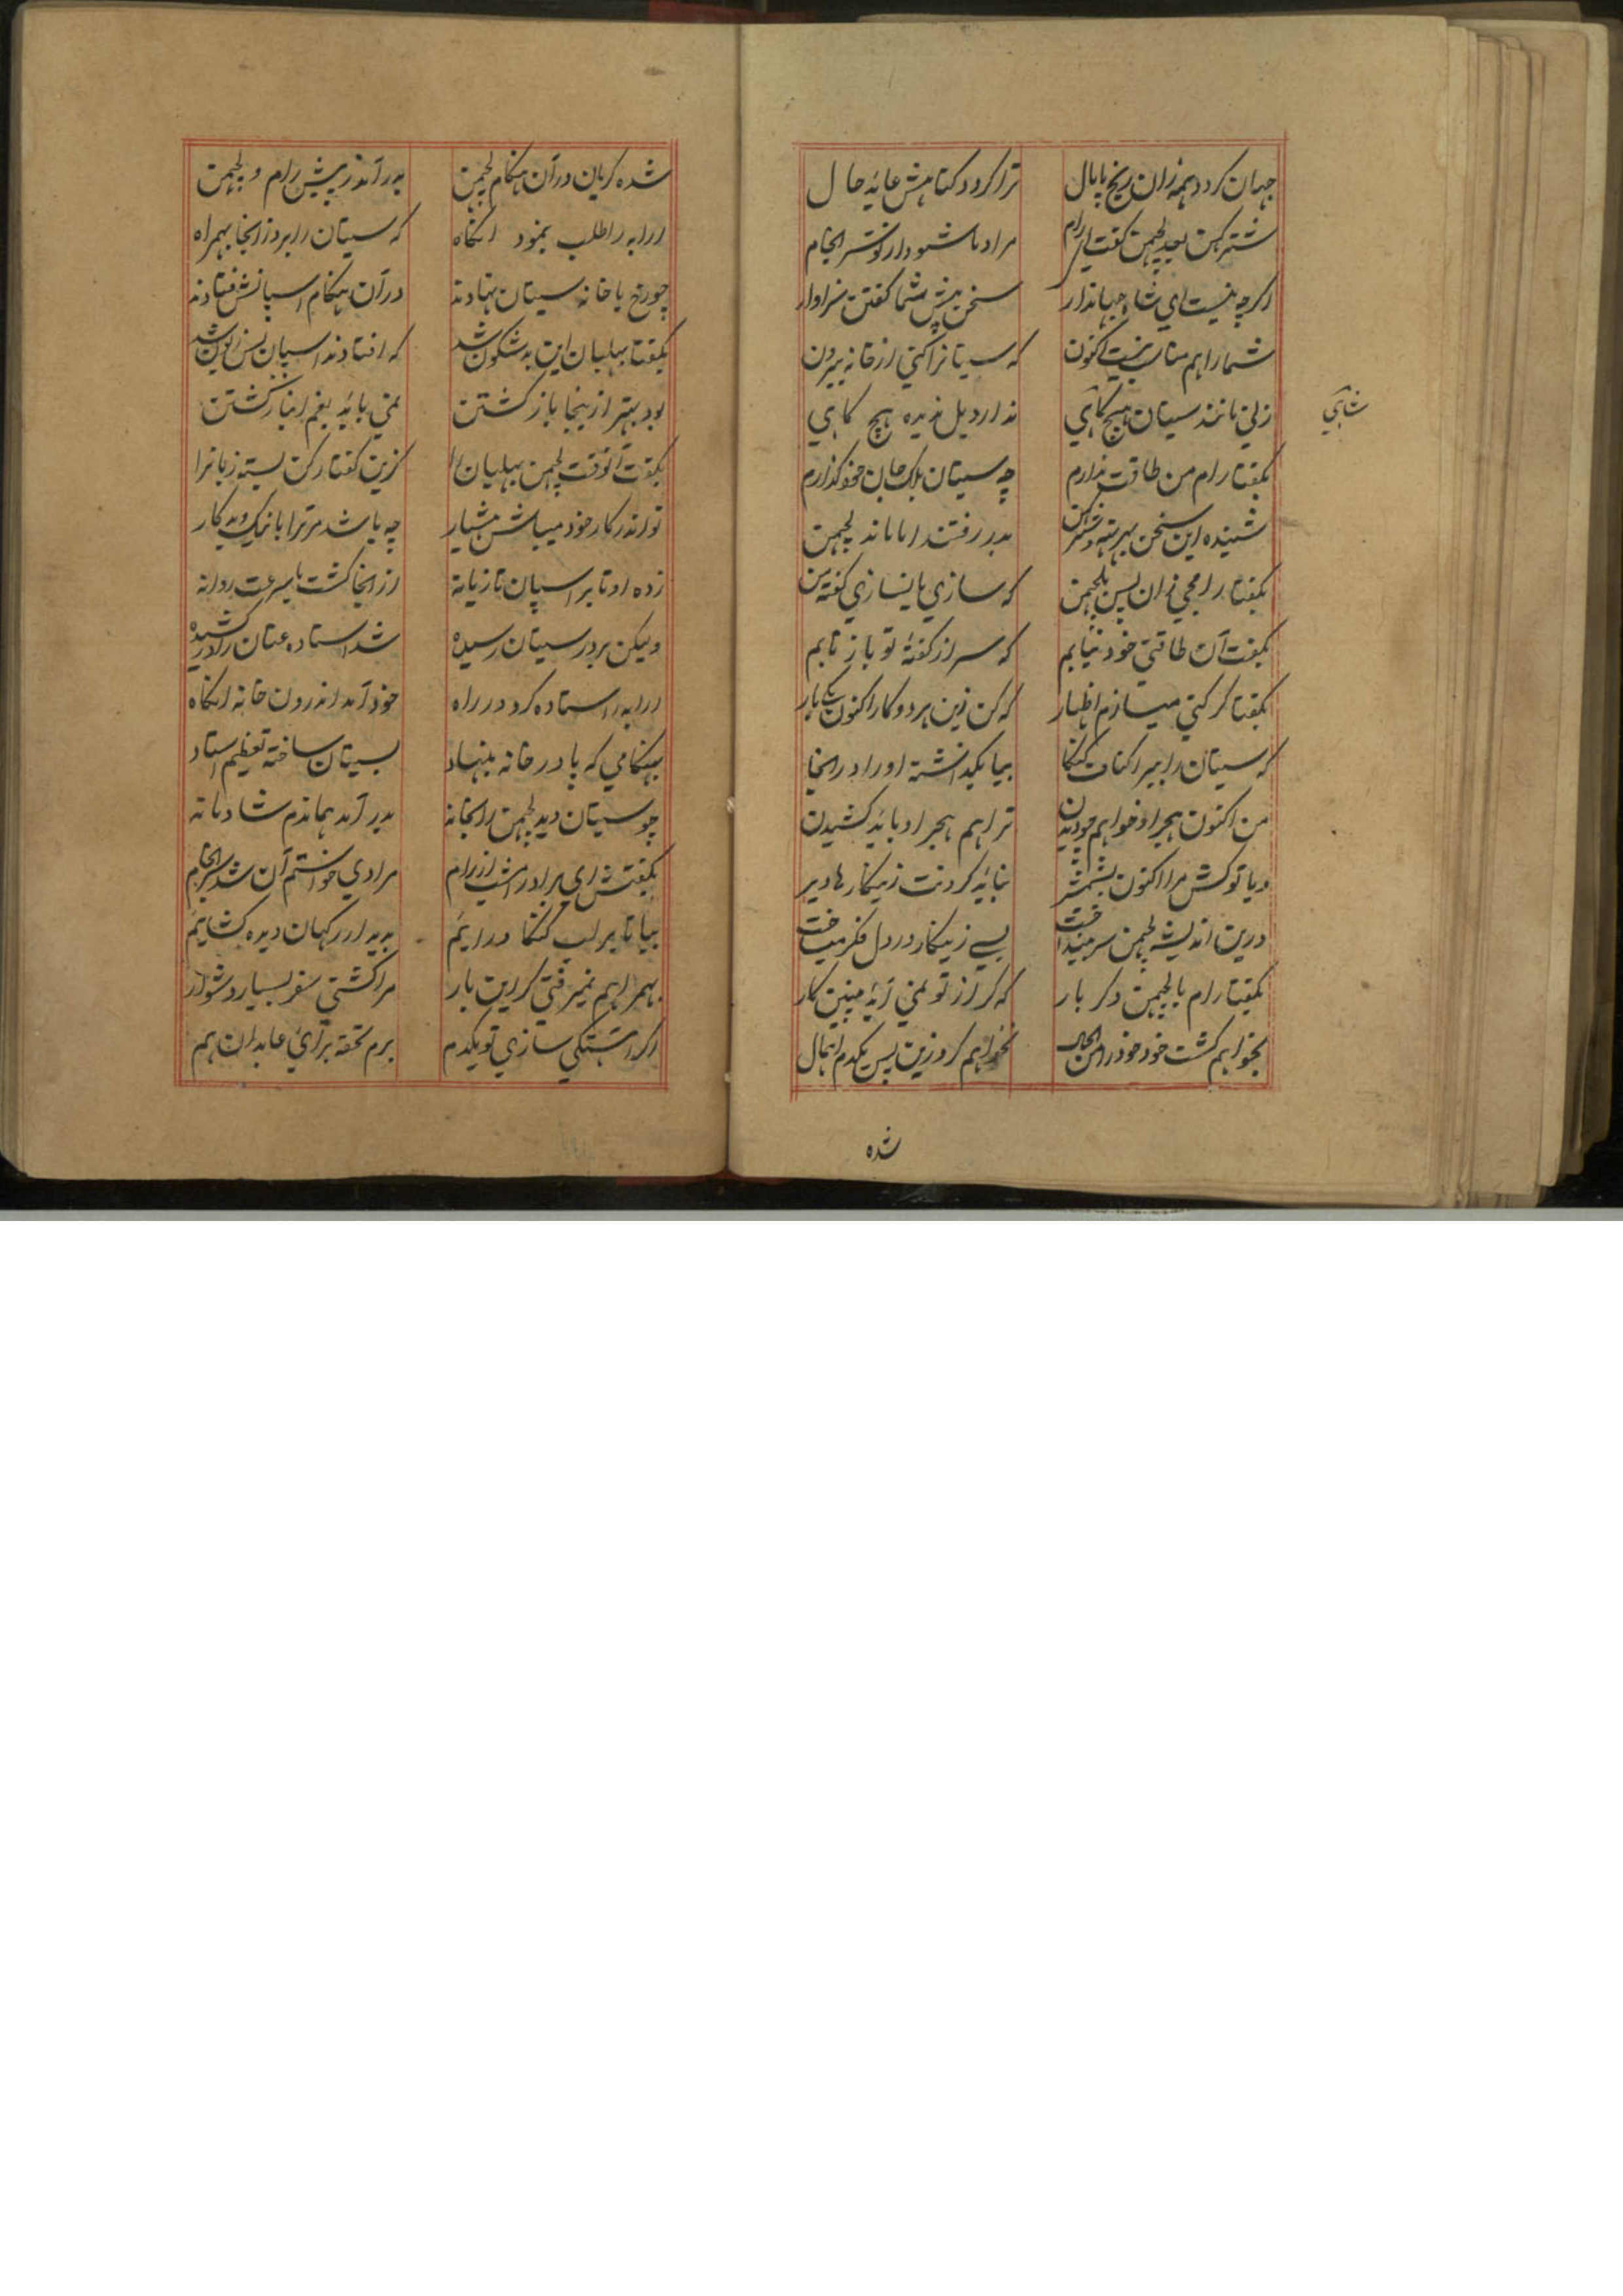 جهان کردد همه زان رنج پامال ترا کردد کناهش عاید حال
شترکهن بعد لچهمن کفت ای رام مرادما شود دار تو سر انجام
اکرچه نیست ای شاه جهاندار سخن پیش شما کفتن سزاوار
شما را هم مناسب نیست اکنون که سیتا نرا کنی از خانه بیرون
زنی مانند سیتان هیچ کاهی ندارد یل ندیده هیچ کاهی
شاهی
بکفتا رام من طاقت ندارم چه سیتان بلک جان خود کذارم
شنیده این سخن بهرته و شترکهن بدر رفتند اما ماند لچهمن
بکفتا رامجی زان پس بلچهمن که سازی یا نسازی کفته من
بکفت آن طاقتی خود نیابم که سر از کفته تو باز تابم
بکفتا کر کنی میسازم اظهار که کن زین هر دو کار اکنون یکبار
که سیتان را ببر اکناف کنکا بیا بکذاشته او را در انجا
من اکنون هجر او خواهم چو دیدن ترا هم هجر او باید کشیدن
و یا تو کش مرا اکنون بشمشیر نباید کردنت زینکارها دیر
درین اندیشه لچهمن سر مینداخت بسی زینکار در دل فکر میساخت
بکفتا رام با لچهمن دکر بار که کر از تو نمی آید چنین کار
بخواهم کشت خود خود را من الحال نخواهم کرد زین پس یکدم اهمال
شده
شده کریان در آن هنکام لچهمن بدر آمد ز پیش رام و لچهمن
ارابه را طلب بنمود انکاه که سیتان را برد زانجا بهمراه
چو رخ با خانه سیتان نهادند در آن هنکام اسپانش فتادند
بکفتا بهلبان این بد شکون شد که افتادند اسپان پس زبون شد
بود بهتر ازینجا باز کشتن نمی باید بغم انباز کشتن
بکفت آنوقت لچهمن بهلبان را کزین کفتار کن بسته زبانرا
تو اندر کار خود میباش هشیار چه باشد مر ترا با نیک و بد کار
زده او تا بر اسپان تازیانه از انجا کشت با سرعت روانه
ولیکن بر در سیتان رسیده شد استاده عنان را در کشیده
ارابه را استاده کرد در راه خود آمد اندرون خانه انکاه
بهنکامی که پا در خانه بنهاد بسیتان ساخته تعظیم استاد
چو سیتان دید لچهمن را بخانه بدر آمد هماندم شادمانه
بکفتش ای برادر امشب از رام مرادی خواستم آن شد سر انجام
بیا تا بر لب کنکا در ایم بدیدار رکهان دیده کشایم
بهمراهم نمیرفتی کر این بار مرا کشتی سفر بسیار دشوار
اکر اهستکی سازی تو یکدم برم تحفه برای عابدان هم